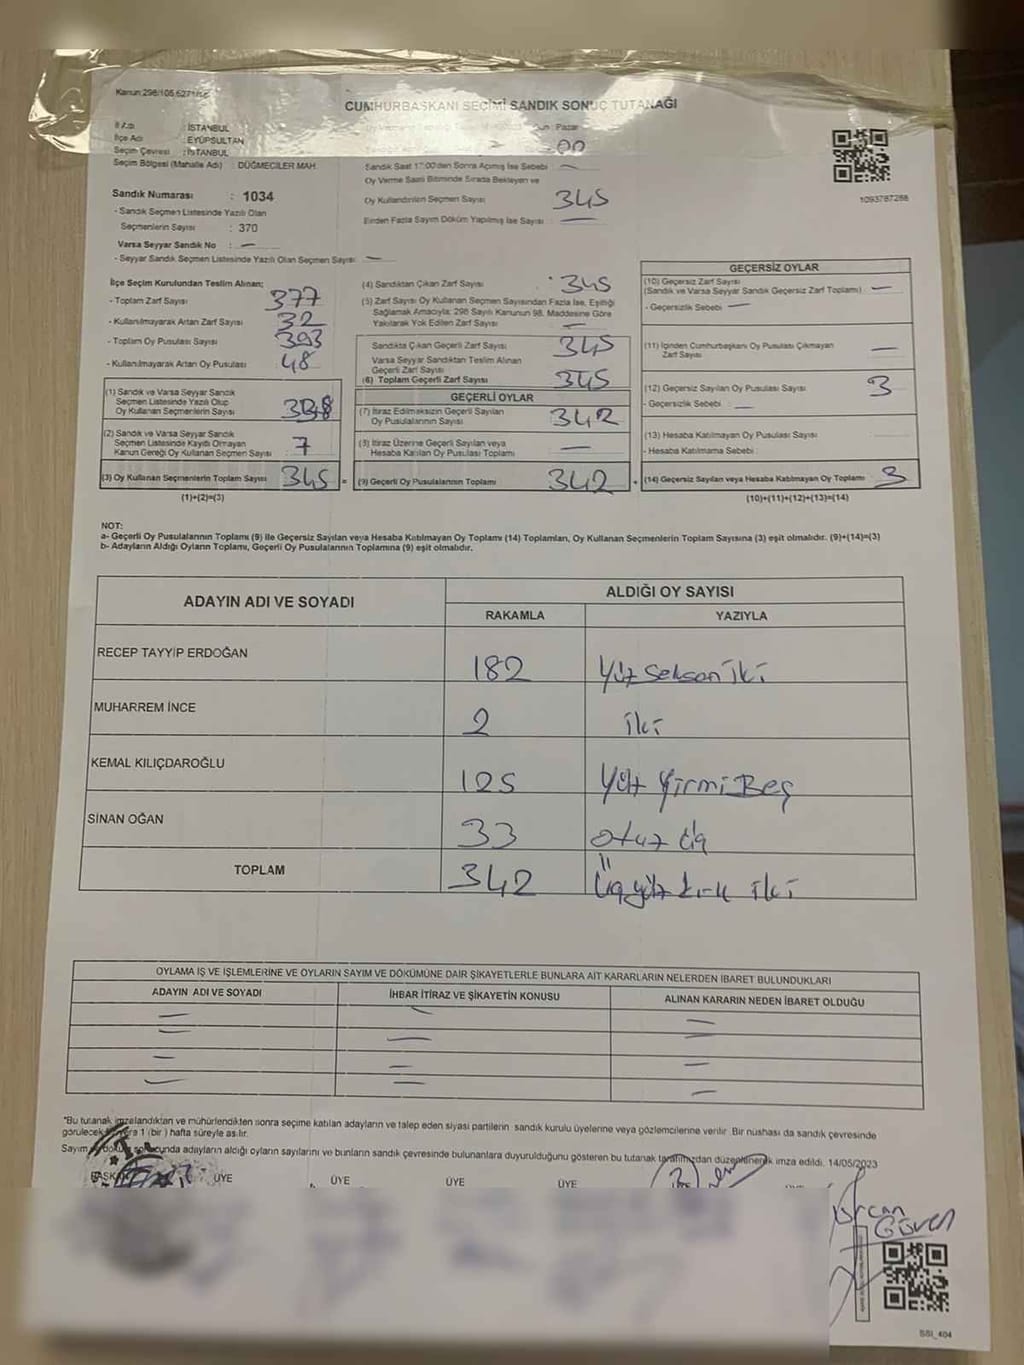 Kanun:298/105,6271/
CUMHURBAŞKANI SEÇİMİ SANDIK SONUÇ TUTANAĞI
İli : İSTANBUL
İlçe Adı : EYÜPSULTAN
Seçim Çevresi : İSTANBUL
Seçim Bölgesi (Mahalle Adı) : DÜĞMECİLER MAH.
Sandık Numarası : 1034
- Sandık Seçmen Listesinde Yazılı Olan
Seçmenlerin Sayısı : 370
Varsa Seyyar Sandık No : —
- Seyyar Sandık Seçmen Listesinde Yazılı Olan Seçmen Sayısı —
Pazar
00
Sandık Saat 17:00'den Sonra Açılmış İse Sebebi —
Oy Verme Saati Bitiminde Sırada Bekleyen ve
Oy Kullandırılan Seçmen Sayısı 345
Birden Fazla Sayım Döküm Yapılmış İse Sayısı —
1093787288
İlçe Seçim Kurulundan Teslim Alınan;
- Toplam Zarf Sayısı 377
- Kullanılmayarak Artan Zarf Sayısı 32
- Toplam Oy Pusulası Sayısı 393
- Kullanılmayarak Artan Oy Pusulası 48
(1) Sandık ve Varsa Seyyar Sandık
Seçmen Listesinde Yazılı Olup
Oy Kullanan Seçmenlerin Sayısı 338
(2) Sandık ve Varsa Seyyar Sandık
Seçmen Listesinde Kaydı Olmayan
Kanun Gereği Oy Kullanan Seçmen Sayısı 7
(3) Oy Kullanan Seçmenlerin Toplam Sayısı 345 =
(1)+(2)=(3)
(4) Sandıktan Çıkan Zarf Sayısı 345
(5) Zarf Sayısı Oy Kullanan Seçmen Sayısından Fazla İse, Eşitliği
Sağlamak Amacıyla; 298 Sayılı Kanunun 98. Maddesine Göre
Yakılarak Yok Edilen Zarf Sayısı —
Sandıkta Çıkan Geçerli Zarf Sayısı 345
Varsa Seyyar Sandıktan Teslim Alınan
Geçerli Zarf Sayısı
(6) Toplam Geçerli Zarf Sayısı 345
GEÇERLİ OYLAR
(7) İtiraz Edilmeksizin Geçerli Sayılan
Oy Pusulalarının Sayısı 342
(8) İtiraz Üzerine Geçerli Sayılan veya
Hesaba Katılan Oy Pusulası Toplamı —
(9) Geçerli Oy Pusulalarının Toplamı 342 +
GEÇERSİZ OYLAR
(10) Geçersiz Zarf Sayısı
(Sandık ve Varsa Seyyar Sandık Geçersiz Zarf Toplamı) —
- Geçersizlik Sebebi —
(11) İçinden Cumhurbaşkanı Oy Pusulası Çıkmayan
Zarf Sayısı —
(12) Geçersiz Sayılan Oy Pusulası Sayısı 3
- Geçersizlik Sebebi —
(13) Hesaba Katılmayan Oy Pusulası Sayısı
- Hesaba Katılmama Sebebi
(14) Geçersiz Sayılan veya Hesaba Katılmayan Oy Toplamı 3
(10)+(11)+(12)+(13)=(14)
NOT:
a- Geçerli Oy Pusulalarının Toplamı (9) ile Geçersiz Sayılan veya Hesaba Katılmayan Oy Toplamı (14) Toplamları, Oy Kullanan Seçmenlerin Toplam Sayısına (3) eşit olmalıdır. (9)+(14)=(3)
b- Adayların Aldığı Oyların Toplamı, Geçerli Oy Pusulalarının Toplamına (9) eşit olmalıdır.
ADAYIN ADI VE SOYADI
ALDIĞI OY SAYISI
RAKAMLA YAZIYLA
RECEP TAYYİP ERDOĞAN 182 Yüz seksan iki
MUHARREM İNCE 2 iki
KEMAL KILIÇDAROĞLU 125 Yüz Yirmi Beş
SİNAN OĞAN 33 otuz üç
TOPLAM 342 Üçyüz kırk iki
OYLAMA İŞ VE İŞLEMLERİNE VE OYLARIN SAYIM VE DÖKÜMÜNE DAİR ŞİKAYETLERLE BUNLARA AİT KARARLARIN NELERDEN İBARET BULUNDUKLARI
ADAYIN ADI VE SOYADI İHBAR İTİRAZ VE ŞİKAYETİN KONUSU ALINAN KARARIN NEDEN İBARET OLDUĞU
"Bu tutanak imzalandıktan ve mühürlendikten sonra seçime katılan adayların ve talep eden siyasi partilerin sandık kurulu üyelerine veya gözlemcilerine verilir. Bir nüshası da sandık çevresinde
görülecek 1 (bir ) hafta süreyle asılır.
Sayım adayların aldığı oyların sayılarını ve bunların sandık çevresinde bulunanlara duyurulduğunu gösteren bu tutanak tarafımızdan düzenlenerek imza edildi. 14/05/2023
ÜYE ÜYE ÜYE ÜYE
Güven
SSI_404